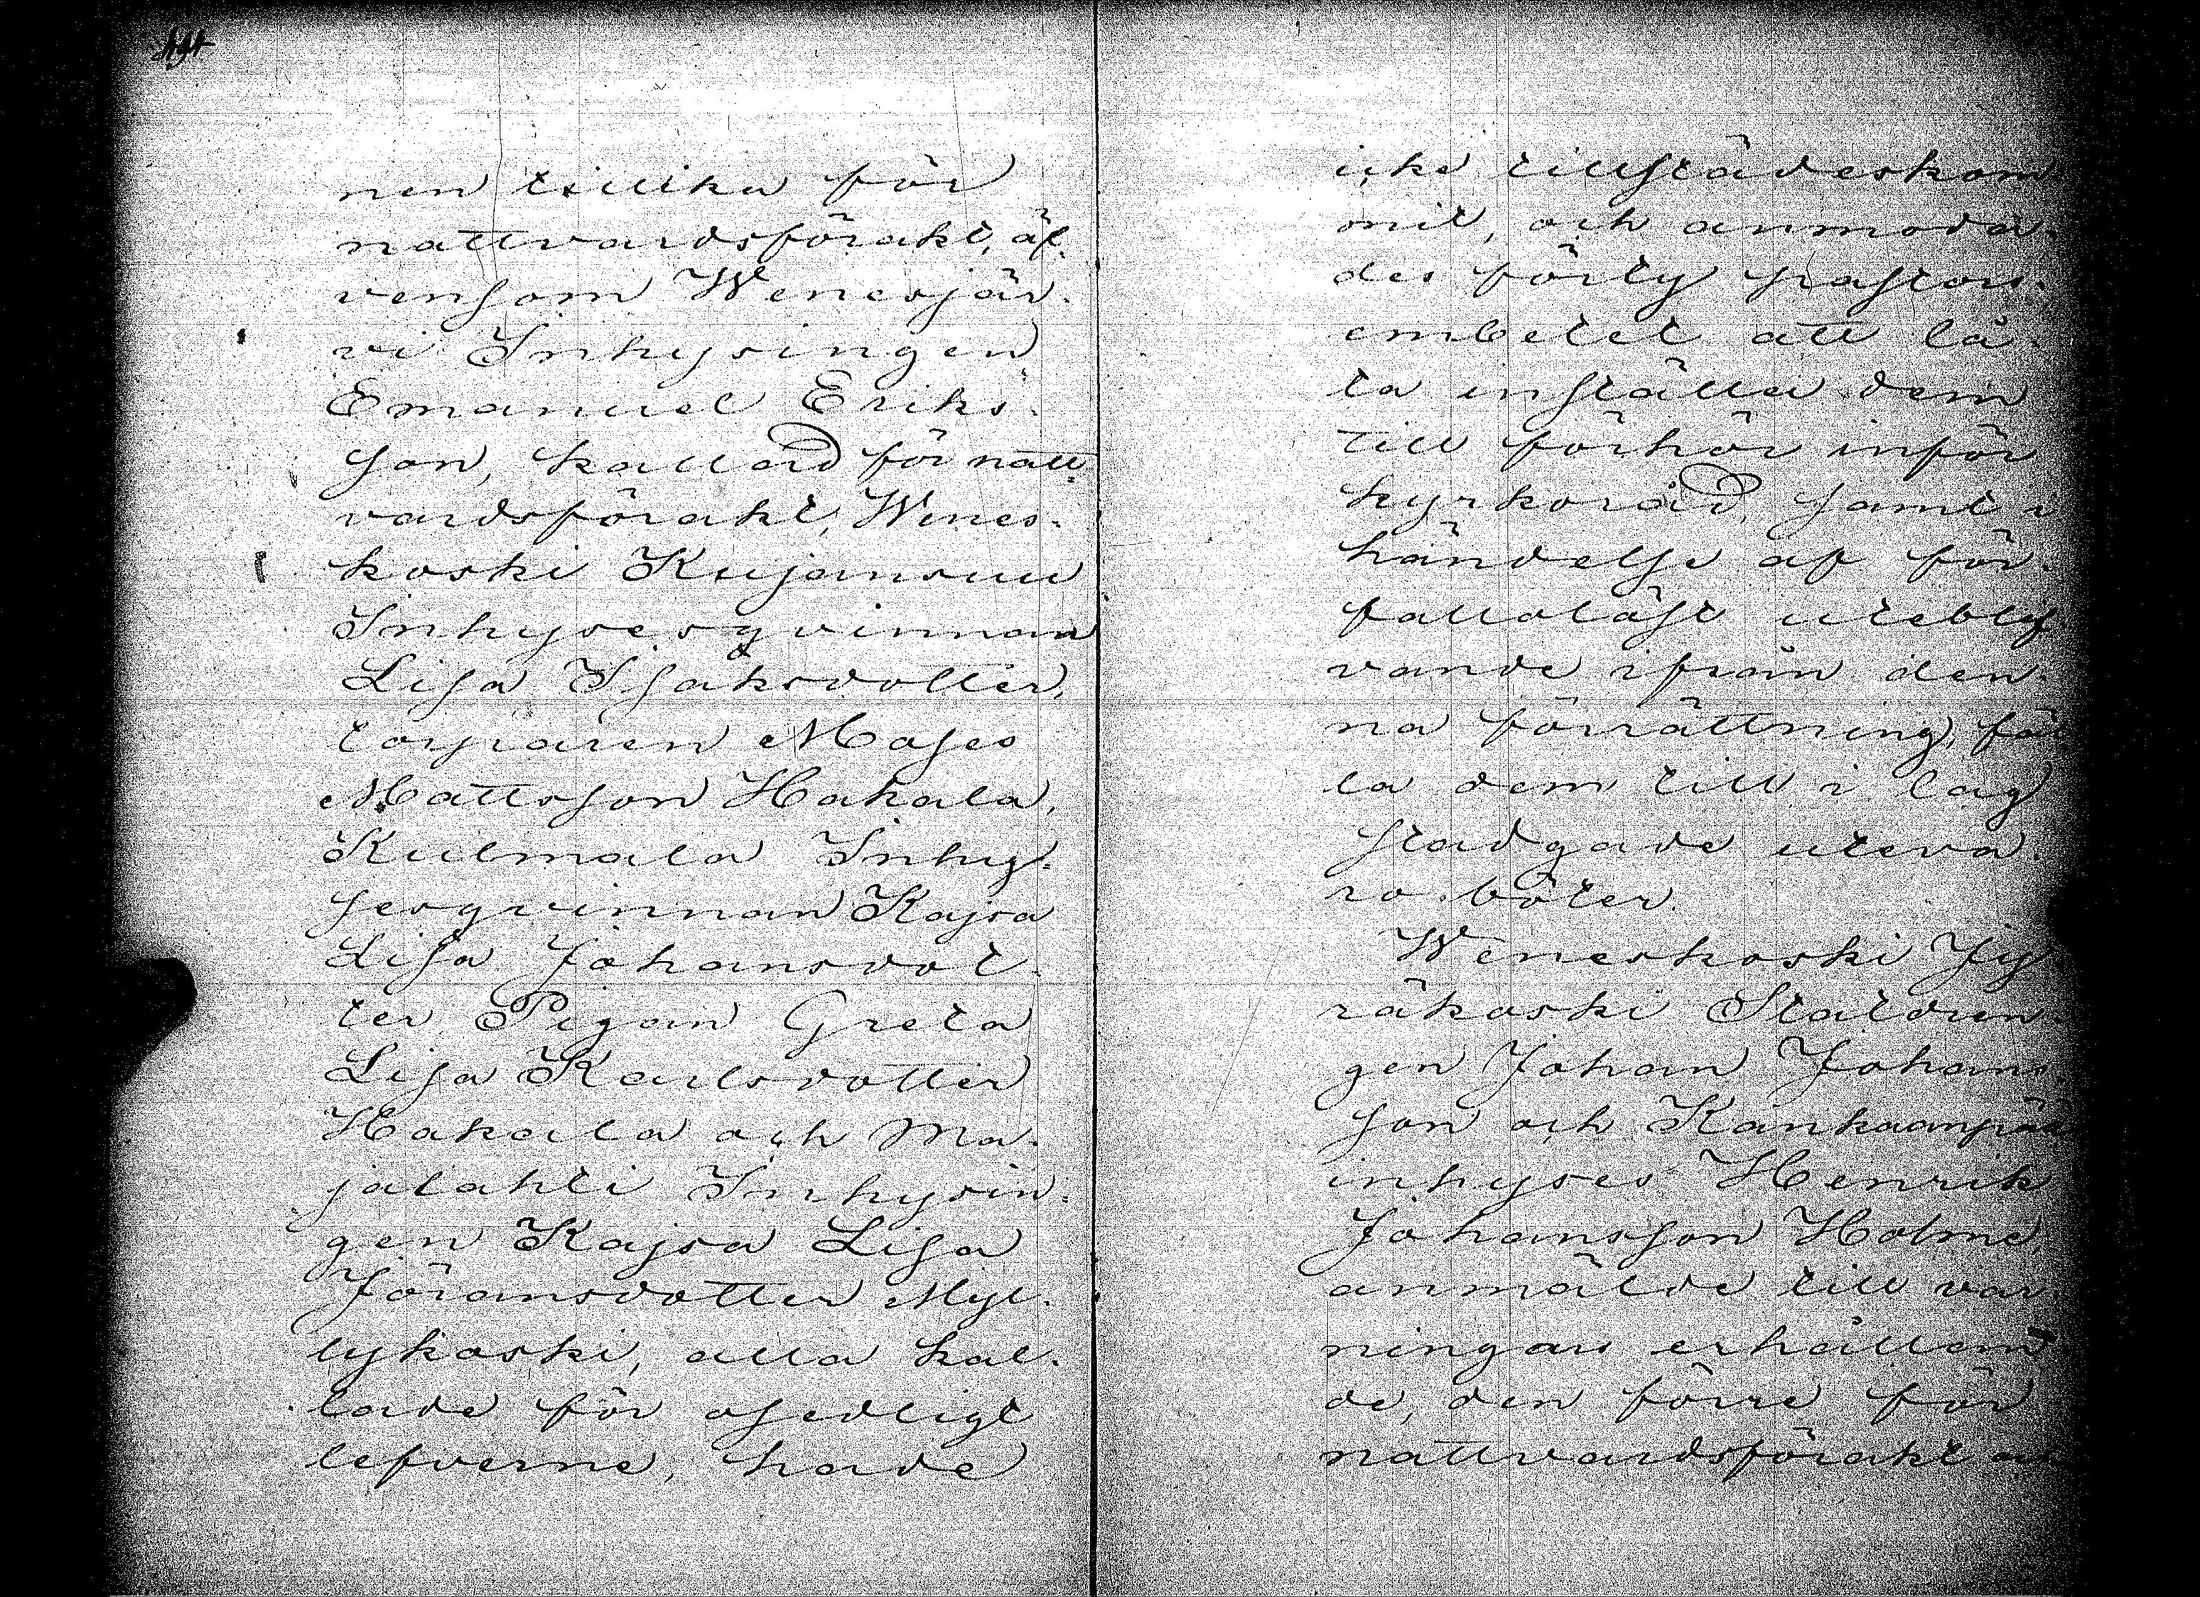 nen tillika för
nattvardsförakt, äf-
vensom Wenesjär-
vi Inhysingen
Emanuel Eriks-
son, kallad för natt-
vardsförakt, Wenes-
koski Kujansuu
Inhysesqvinnan
Lisa Isaksdotter,
torparen Moses
Mattsson Hakala,
Kulmala Inhy-
sesqvinnan Kajsa
Lisa Johansdot-
ter, Pigan Greta
Lisa Karlsdotter
Hakala och Ma-
jalahti Inhysin-
gen Kajsa Lisa
Jöransdotter Myl-
lykoski, alla kal-
lade för osedligt
lefverne, hade
icke tillstädeskom
mit, och anmoda-
des förty pastors-
embetet att lå-
ta inställa dem
till förhör inför
kyrkoråd, samt i
händelse af för-
fallolöst utebli
vande ifrån den-
na förrättning, fäl
la dem till i lag
stadgade uteva-
ro böter.
Weneskoski Jy
räkoski Statdren
gen Johan Johans-
son och Kankaanpää
inhyses Henrik
Johansson Holme,
anmälde till var
ningars erhållan
de, den förre för
nattvardsförakt